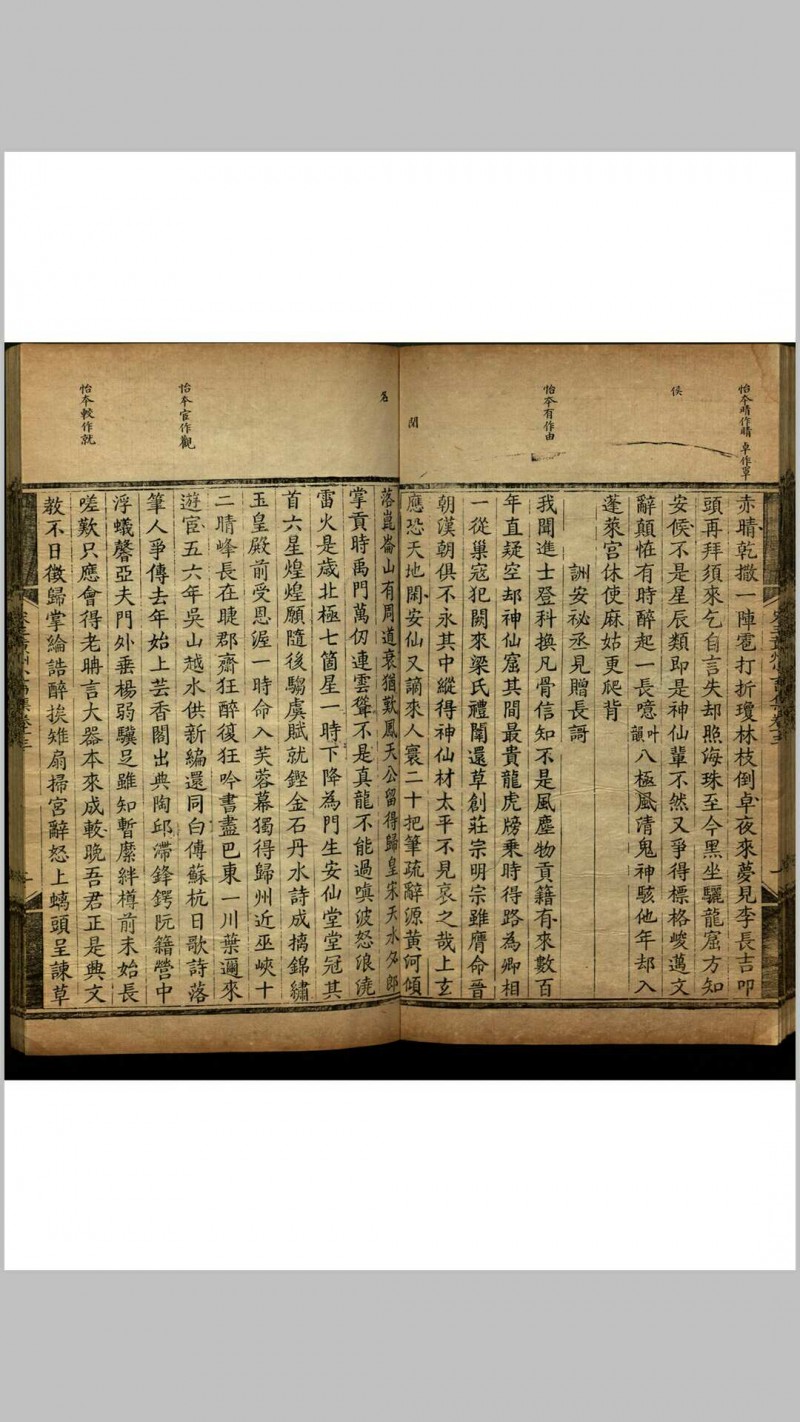 怡本晴作睛 卓作草
侯
怡本有作由
閒
名
怡本官作觀
怡本較作就
赤晴乾撒一陣雹打折瓊林枝倒卓夜來夢見李長吉叩
頭再拜須來乞自言失却照海珠至今黑坐驪龍窟方知
安侯不是星辰類即是神仙輩不然又爭得標格峻邁文
辭顛怪有時醉起一長噫叶韻八極風清鬼神駭他年却入
蓬萊宮休使麻姑更爬背
詶安祕丞見贈長謌
我聞進士登科換凡骨信知不是風塵物貢籍有來數百
年直疑空却神仙窟其間最貴龍虎牓乘時得路為卿相
一從巢寇犯闕來梁氏禮闈還草創莊宗明宗雖膺命晉
朝漢朝俱不永其中縱得神仙材太平不見哀之哉上玄
應恐天地閑安仙又謫來人寰二十把筆疏辭源黃河傾
落崑崙山有周道衰猶歎鳳天公留得歸皇宋天水名郎
掌貢時禹門萬仞連雲聳不是真龍不能過嗔波怒浪澆
雷火是歲北極七箇星一時下降為門生安仙堂堂冠其
首六星煌煌願隨後騶虞賦就鏗金石丹水詩成摛錦繡
玉皇殿前受恩渥一時命入芙蓉幕獨得歸州近巫峽十
二晴峰長在睫郡齋狂醉復狂吟書盡巴東一川葉邇來
遊宦五六年吳山越水供新編還同白傅蘇杭日歌詩落
筆人爭傳去年始上芸香閣出典陶邱滯鋒鍔阮籍營中
浮蟻馨亞夫門外垂楊弱驥足雖知暫縻絆樽前未始長
嗟歎只應會得老聃言大器本來成較晚吾君正是典文
教不日徵歸掌綸誥醉挨雉扇掃宮辭怒上螭頭呈諫草